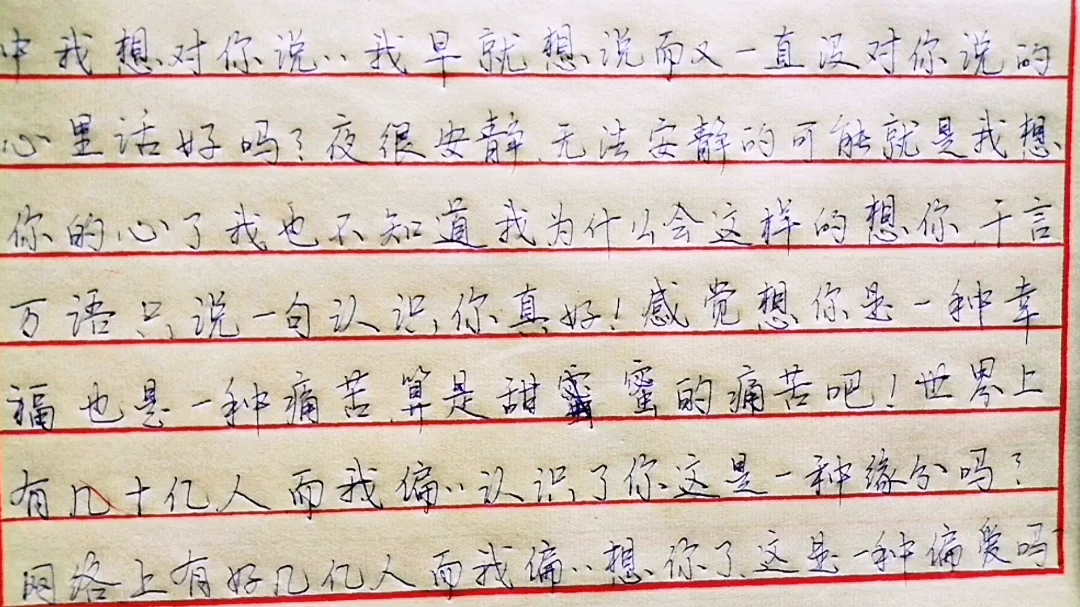 中我想对你说、、我早就想说而又一直没对你说的
心里话好吗？夜很安静、无法安静的可能就是我想
你的心了我也不知道我为什么会这样的想你、千言
万语只说一句认识你真好！感觉想你是一种幸
福也是一种痛苦、算是甜蜜的痛苦吧！世界上
有几十亿人而我偏、、认识了你这是一种缘分吗？
网络上有好几亿人而我偏、、想你了这是一种偏爱吗